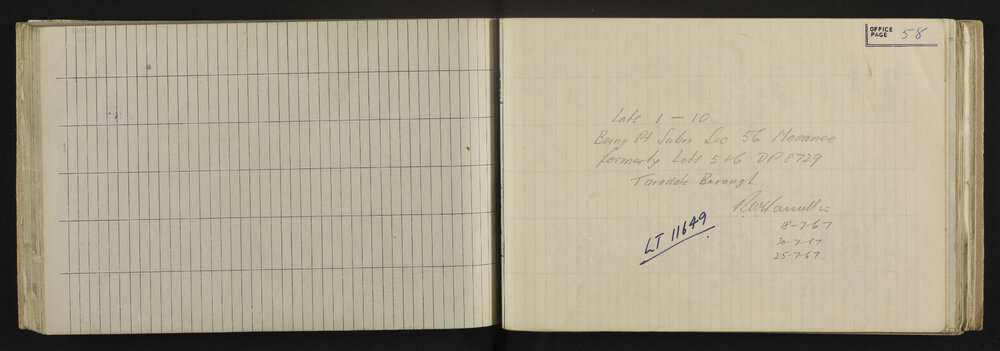 OFFICE
PAGE 58
Lots 1 — 10
Being Pt Subn Sec 56 Meeanee
formerly Lots 5+6 DP 8729
Taradale Borough
18-7-67
20-7-67
25-7-67
LT 11649